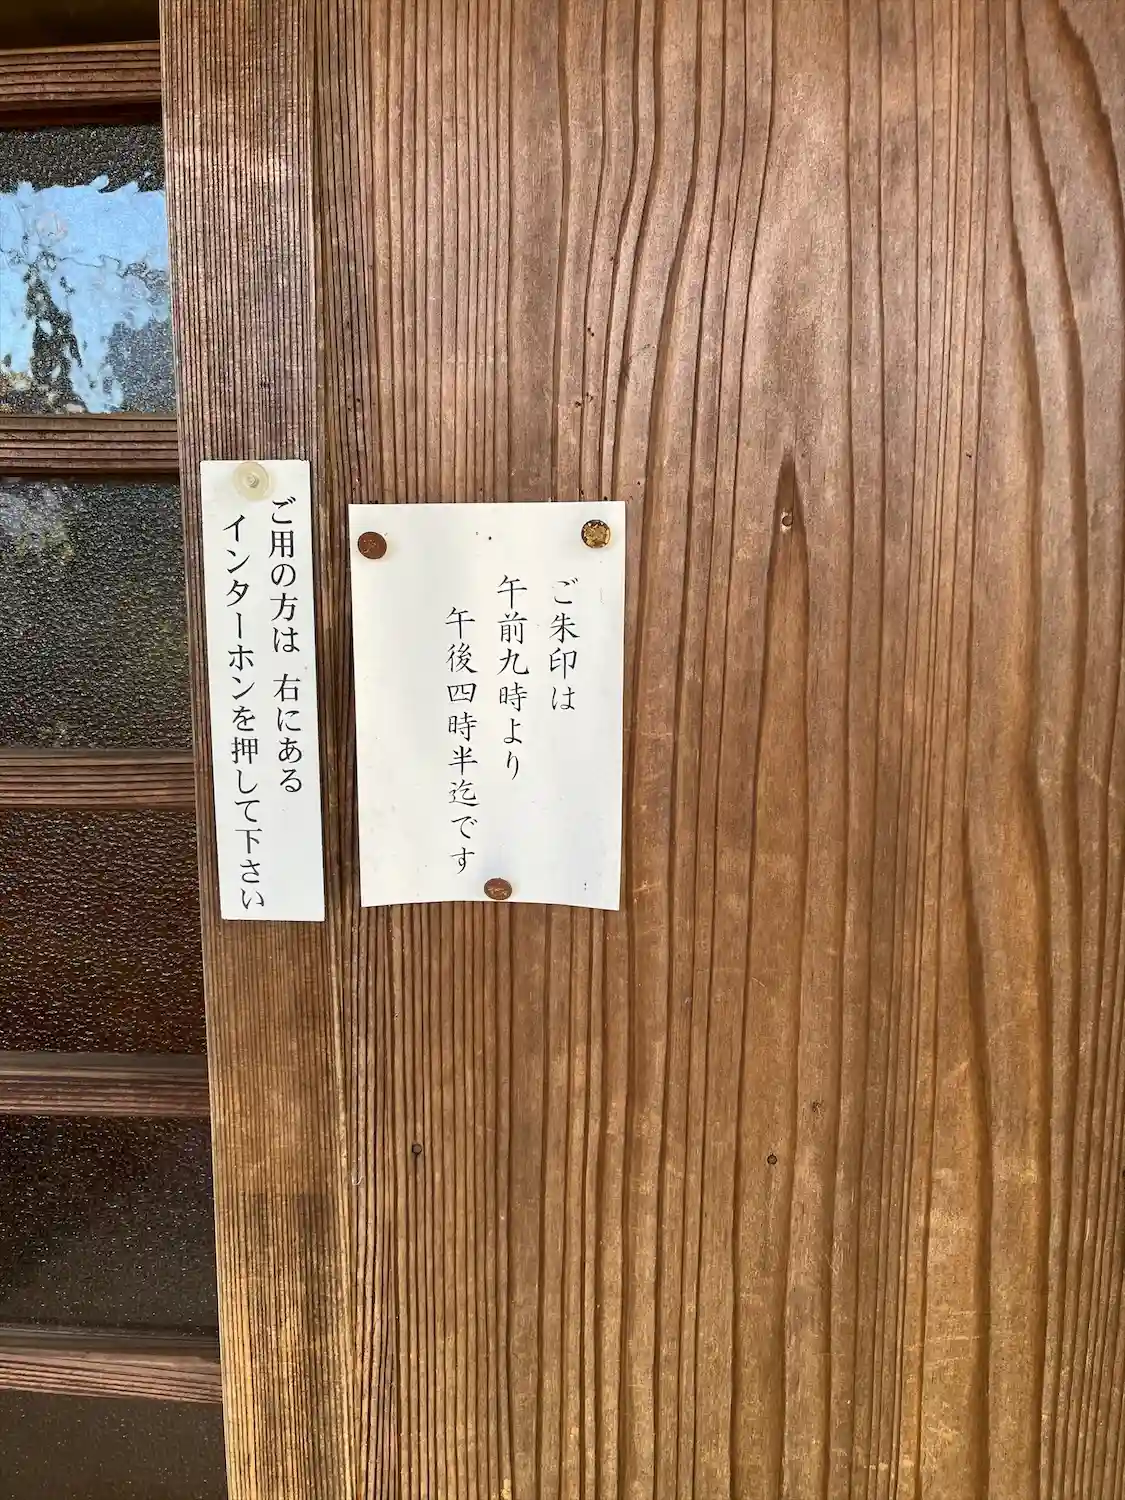 ご朱印は
午前九時より
午後四時半迄です
ご用の方は 右にある
インターホンを押して下さい